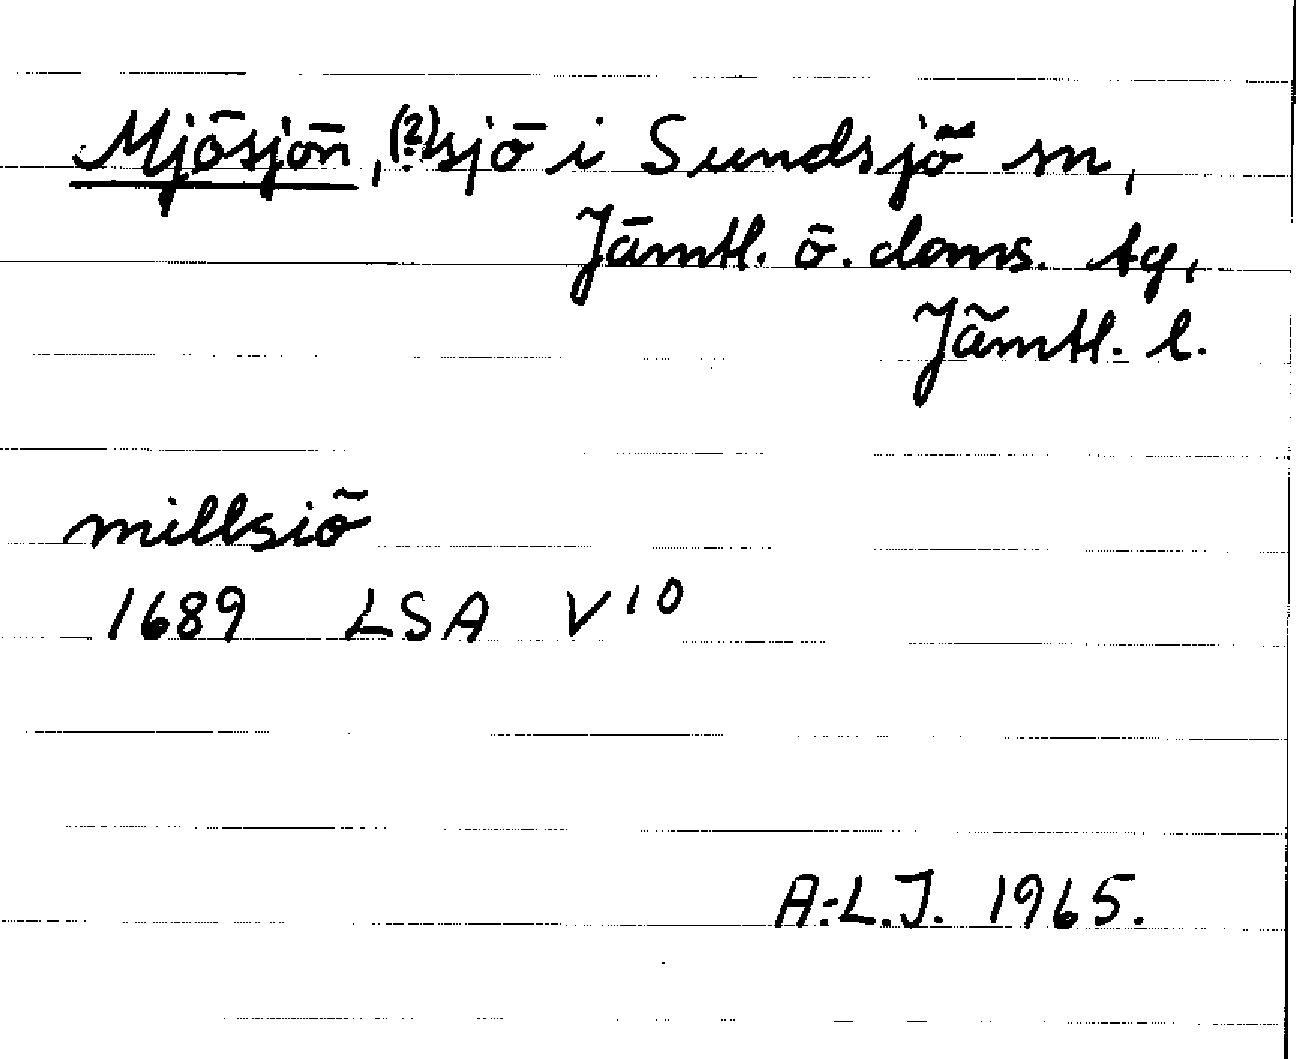 Mjösjön, (?) sjö i Sundsjö sn,
Jämtl. ö. doms. tg,
Jämtl. l.
millsiö
1689 LSA V10
A.-L.J. 1965.